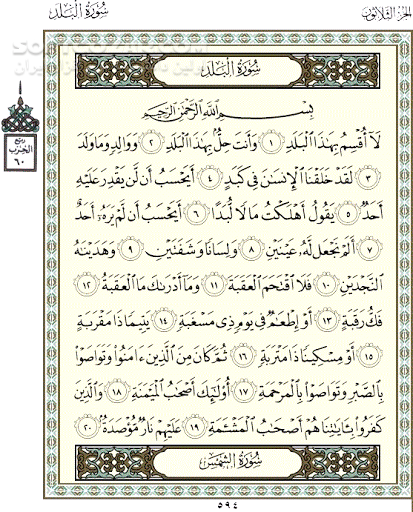 الجزء الثلاثون
سورة البلد
سورة البلد
بسم الله الرحمن الرحيم
لَآ أُقْسِمُ بِهَٰذَا ٱلْبَلَدِ ١ وَأَنتَ حِلٌّۢ بِهَٰذَا ٱلْبَلَدِ ٢ وَوَالِدٍ وَمَا وَلَدَ
٣ لَقَدْ خَلَقْنَا ٱلْإِنسَٰنَ فِى كَبَدٍ ٤ أَيَحْسَبُ أَن لَّن يَقْدِرَ عَلَيْهِ
أَحَدٌ ٥ يَقُولُ أَهْلَكْتُ مَالًا لُّبَدًا ٦ أَيَحْسَبُ أَن لَّمْ يَرَهُۥٓ أَحَدٌ
٧ أَلَمْ نَجْعَل لَّهُۥ عَيْنَيْنِ ٨ وَلِسَانًا وَشَفَتَيْنِ ٩ وَهَدَيْنَٰهُ
ٱلنَّجْدَيْنِ ١٠ فَلَا ٱقْتَحَمَ ٱلْعَقَبَةَ ١١ وَمَآ أَدْرَىٰكَ مَا ٱلْعَقَبَةُ ١٢
فَكُّ رَقَبَةٍ ١٣ أَوْ إِطْعَٰمٌ فِى يَوْمٍ ذِى مَسْغَبَةٍ ١٤ يَتِيمًا ذَا مَقْرَبَةٍ
١٥ أَوْ مِسْكِينًا ذَا مَتْرَبَةٍ ١٦ ثُمَّ كَانَ مِنَ ٱلَّذِينَ ءَامَنُوا۟ وَتَوَاصَوْا۟
بِٱلصَّبْرِ وَتَوَاصَوْا۟ بِٱلْمَرْحَمَةِ ١٧ أُو۟لَٰٓئِكَ أَصْحَٰبُ ٱلْمَيْمَنَةِ ١٨ وَٱلَّذِينَ
كَفَرُوا۟ بِـَٔايَٰتِنَا هُمْ أَصْحَٰبُ ٱلْمَشْـَٔمَةِ ١٩ عَلَيْهِمْ نَارٌ مُّؤْصَدَةٌۢ ٢٠
سورة الشمس
٥٩٤
ربع
الحزب
٦٠